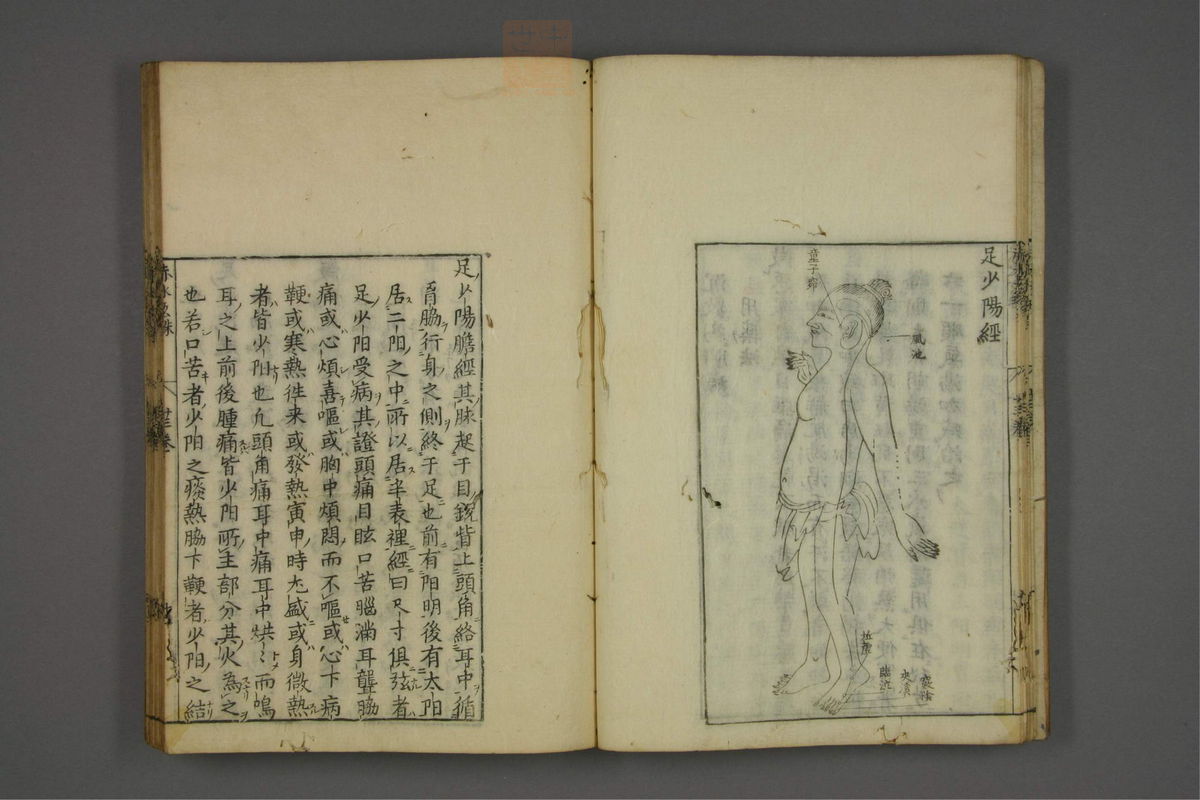 足少陽經
童子窌
風池
丘墟
臨泣
俠溪
竅陰
足少陽膽經其脉起于目銳眥上頭角絡耳中循
胷脇行身之側終于足也前有阳明後有太阳
居二阳之中所以居半表裡經曰尺寸俱弦者
足少阳受病其證頭痛目眩口苦腦滿耳聾脇
痛或心煩喜嘔或胸中煩悶而不嘔或心下病
鞕或寒熱徃来或發熱寅申時尤盛或身微熱
者皆少阳也凢頭角痛耳中痛耳中烘〻而鳴
耳之上前後腫痛皆少阳所主部分其火為之
也若口苦者少阳之痰熱脇下鞕者少阳之結